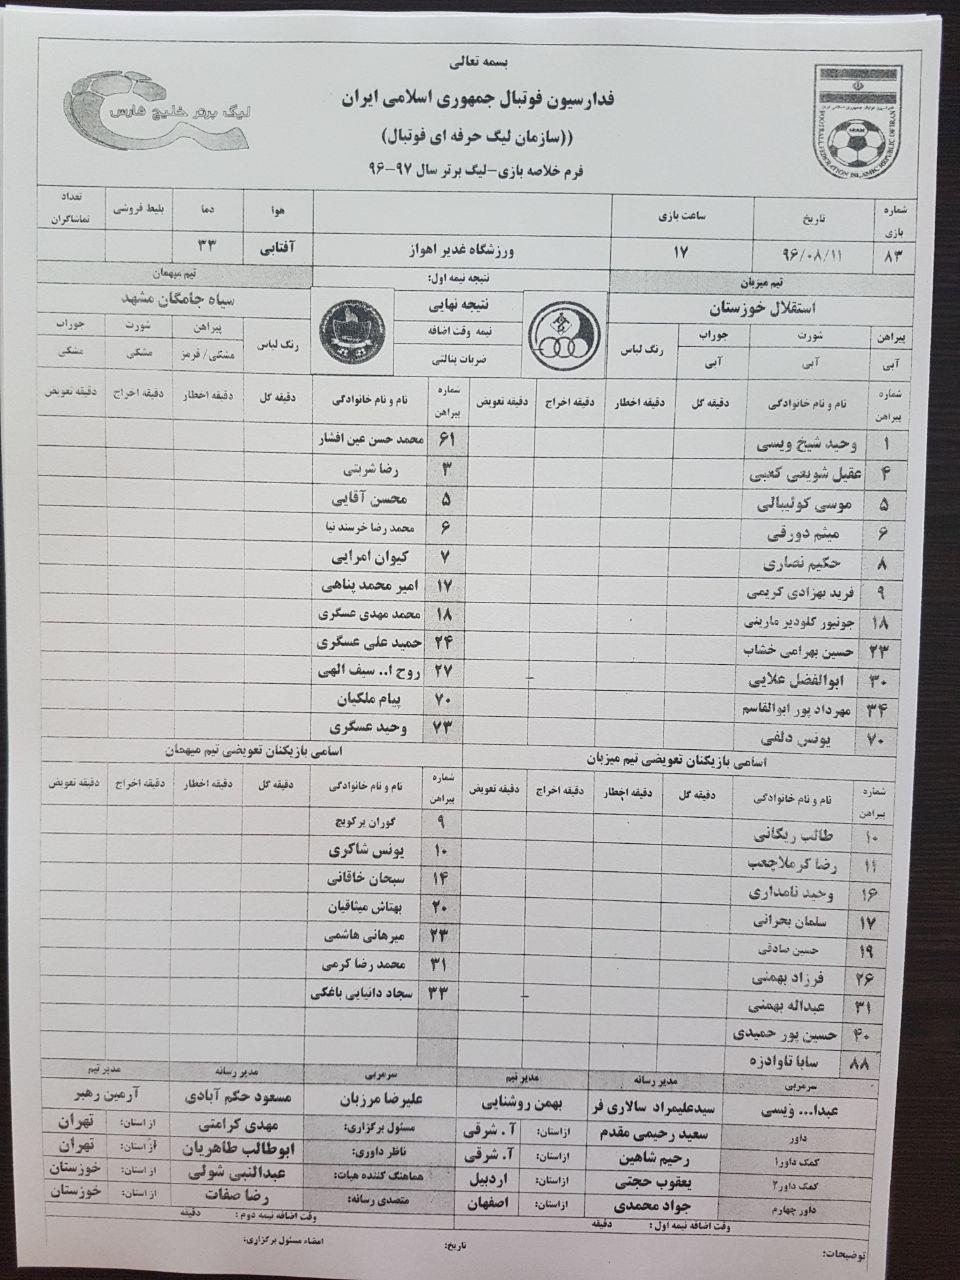 بسمه تعالی
فدارسیون فوتبال جمهوری اسلامی ایران
((سازمان لیگ حرفه ای فوتبال)
فرم خلاصه بازی-لیگ برتر سال ۹۷-۹۶
لیگ برتر خلیج فارس
FOOTBALL FEDERATION ISLAMIC REPUBLIC OF IRAN
IRAN
شماره بازی تاریخ ساعت بازی هوا دما بلیط فروشی تعداد تماشاگران
۸۳ ۹۶/۰۸/۱۱ ۱۷ ورزشگاه غدیر اهواز آفتابی ۳۳
تیم میزبان نتیجه نیمه اول: تیم میهمان
استقلال خوزستان نتیجه نهایی سیاه جامگان مشهد
نیمه وقت اضافه
ضربات پنالتی
پیراهن شورت جوراب رنگ لباس رنگ لباس پیراهن شورت جوراب
آبی آبی آبی مشکی/ قرمز مشکی مشکی
شماره پیراهن نام و نام خانوادگی دقیقه گل دقیقه اخطار دقیقه اخراج دقیقه تعویض شماره پیراهن نام و نام خانوادگی دقیقه گل دقیقه اخطار دقیقه اخراج دقیقه تعویض
۱ وحید شیخ ویسی ۶۱ محمد حسن عین افشار
۴ عقیل شویعی کعبی ۳ رضا شربتی
۵ موسی کولیبالی ۵ محسن آقایی
۶ میثم دورقی ۶ محمد رضا خرسند نیا
۸ حکیم نصاری ۷ کیوان امرایی
۹ فرید بهزادی کریمی ۱۷ امیر محمد پناهی
۱۸ جونیور کلودیر مارینی ۱۸ محمد مهدی عسگری
۲۳ حسین بهرامی خشاب ۲۴ حمید علی عسگری
۳۰ ابوالفضل علایی ۲۷ روح ا.. سیف الهی
۳۴ مهرداد پور ابوالقاسم ۷۰ پیام ملکیان
۷۰ یونس دلفی ۷۳ وحید عسگری
اسامی بازیکنان تعویضی تیم میزبان اسامی بازیکنان تعویضی تیم میهمان
شماره پیراهن نام و نام خانوادگی دقیقه گل دقیقه اخطار دقیقه اخراج دقیقه تعویض شماره پیراهن نام و نام خانوادگی دقیقه گل دقیقه اخطار دقیقه اخراج دقیقه تعویض
۱۰ طالب ریکانی ۹ گوران یرکویچ
۱۱ رضا کرملاچعب ۱۰ یونس شاکری
۱۶ وحید نامداری ۱۴ سبحان خاقانی
۱۷ سلمان بحرانی ۲۰ بهتاش میثاقیان
۱۹ حسین صادقی ۲۳ میرهانی هاشمی
۲۶ فرزاد بهمنی ۳۱ محمد رضا کرمی
۳۱ عبداله بهمنی ۳۳ سجاد دانیایی باغکی
۴۰ حسین پور حمیدی
۸۸ سابا تاوادزه
سرمربی مدیر رسانه مدیر تیم سرمربی مدیر رسانه مدیر تیم
عبدا... ویسی سیدعلیمراد سالاری فر بهمن روشنایی علیرضا مرزبان مسعود حکم آبادی آرمین رهبر
داور سعید رحیمی مقدم ازاستان: آ. شرقی مسئول برگزاری: مهدی کرامتی از استان: تهران
کمک داور۱ رحیم شاهین ازاستان: آ. شرقی ناظر داوری: ابوطالب طاهریان از استان: تهران
کمک داور۲ یعقوب حجتی ازاستان: اردبیل هماهنگ کننده هیات: عبدالنبی شوئی از استان: خوزستان
داور چهارم جواد محمدی ازاستان: اصفهان متصدی رسانه: رضا صفات از استان: خوزستان
وقت اضافه نیمه اول : دقیقه وقت اضافه نیمه دوم : دقیقه
توضیحات: تاریخ: امضاء مسئول برگزاری: